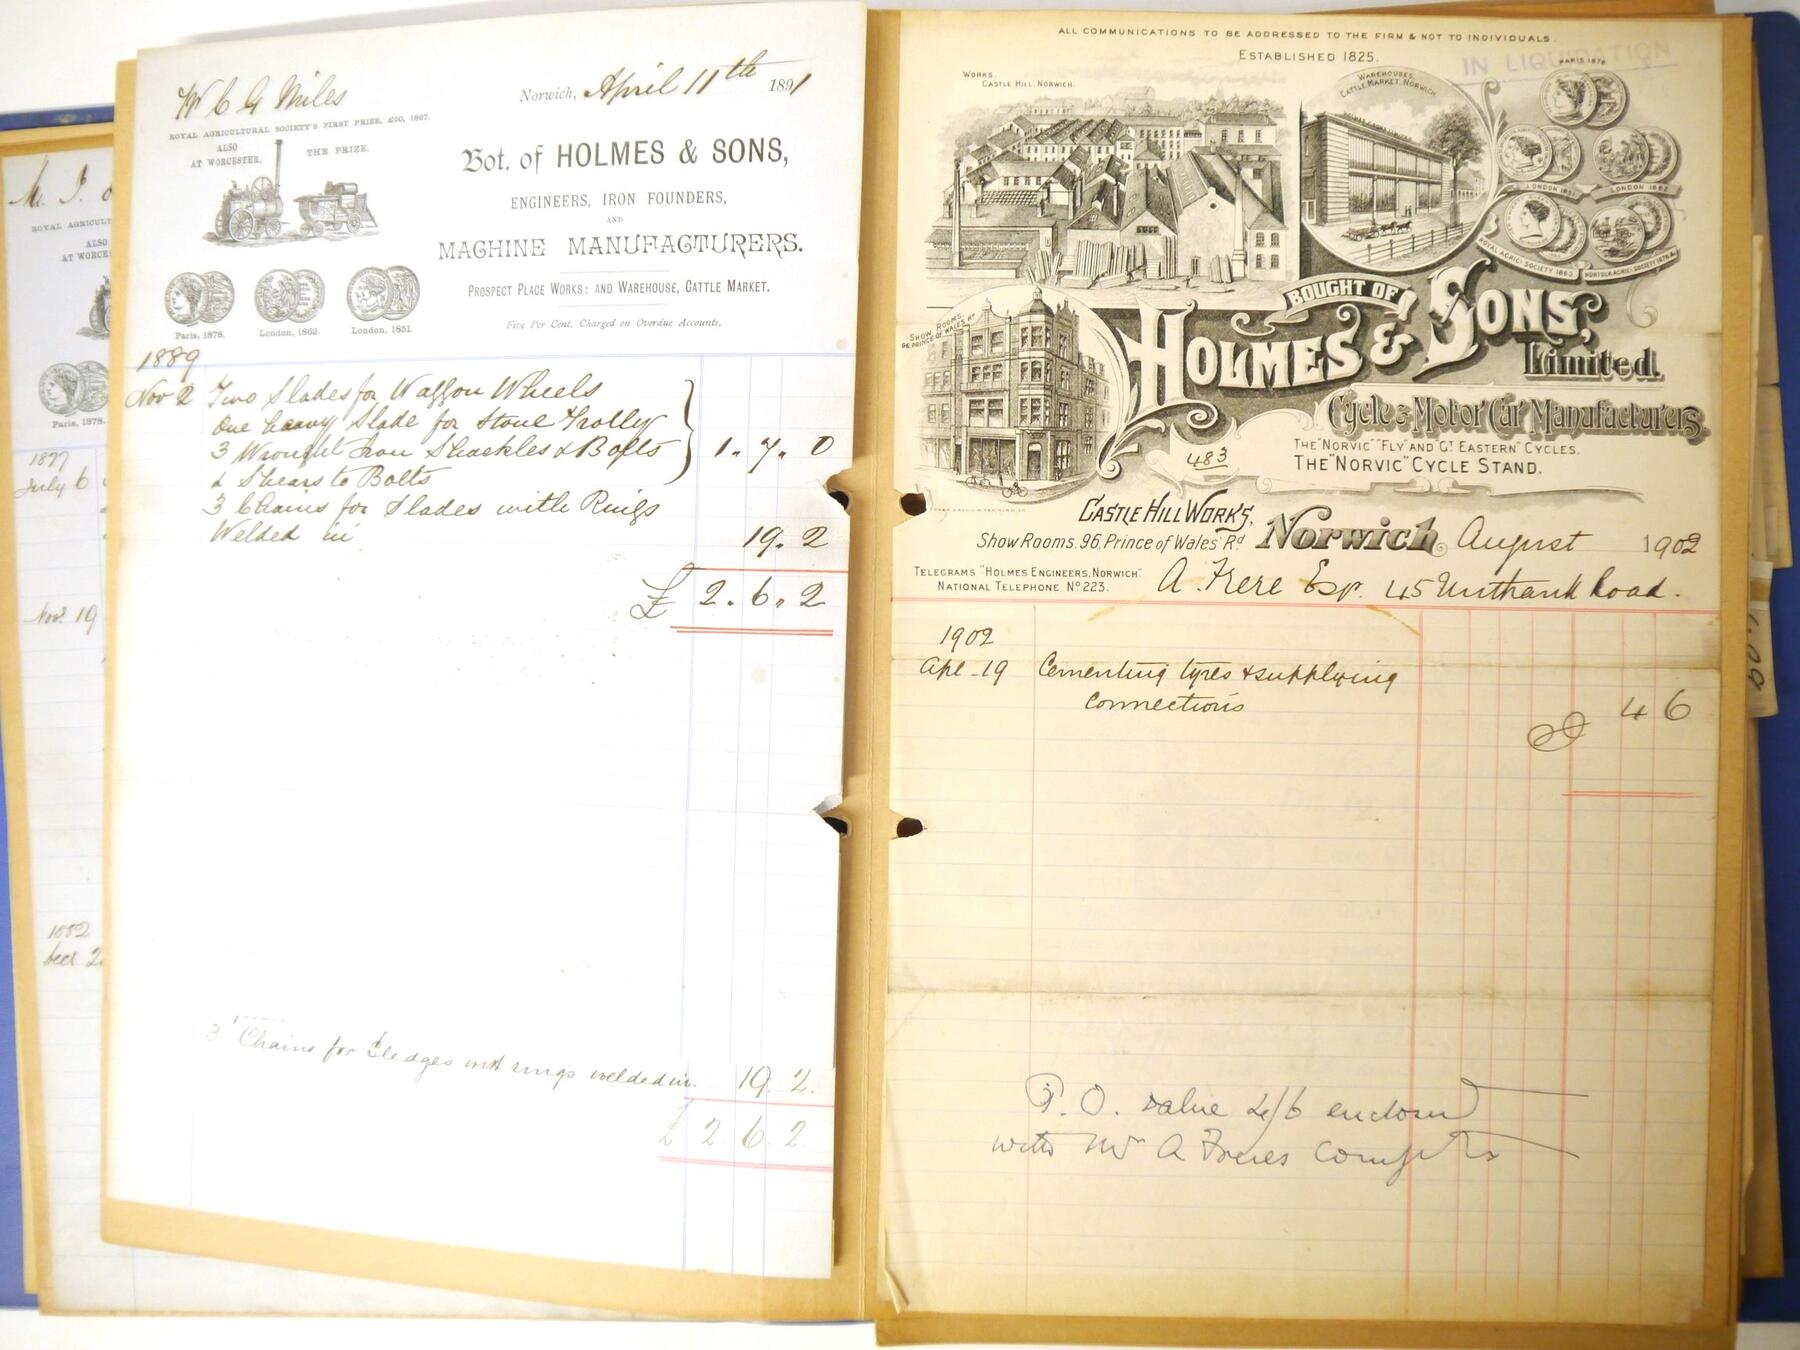 Mr C G Miles
Norwich, April 11th 1891
ROYAL AGRICULTURAL SOCIETY'S FIRST PRIZE, £20, 1867.
ALSO
AT WORCESTER, THE PRIZE.
Bot. of HOLMES & SONS,
ENGINEERS, IRON FOUNDERS,
AND
MACHINE MANUFACTURERS.
PROSPECT PLACE WORKS: AND WAREHOUSE, CATTLE MARKET.
Five Per Cent. Charged on Overdue Accounts.
Paris, 1878. London, 1862. London, 1851.
1889
Nov 2 Two Slades for Waggon Wheels
One heavy Slade for Stone Trolly
3 Wrought Iron Shackles & Bolts 1. 7. 0
& Shears to Bolts
3 Chains for Slades with Rings
Welded in 19. 2
£ 2. 6. 2
3 Chains for Sledges with rings welded in. 19. 2.
£ 2 6. 2.
M. J.
ROYAL AGRICULT
ALSO
AT WORCES
Paris, 1878.
1877
July 6
Nov. 19
1882
Dec 2
ALL COMMUNICATIONS TO BE ADDRESSED TO THE FIRM & NOT TO INDIVIDUALS.
ESTABLISHED 1825.
IN LIQUIDATION
WORKS.
CASTLE HILL. NORWICH.
WAREHOUSES,
CATTLE MARKET, NORWICH
PARIS 1878
LONDON 1851 LONDON 1862
ROYAL AGRICL SOCIETY 1863. NORFOLK AGRICL SOCIETY 1872.
SHOW ROOMS.
96, PRINCE OF WALES RD
BOUGHT OF
HOLMES & SONS,
Limited.
Cycle & Motor Car Manufacturers.
THE "NORVIC" "FLY" AND "GT EASTERN" CYCLES.
THE "NORVIC" CYCLE STAND.
483
CASTLE HILL WORKS,
Show Rooms, 96, Prince of Wales Rd Norwich August 1902
TELEGRAMS "HOLMES ENGINEERS, NORWICH".
NATIONAL TELEPHONE No 223.
A. Frere Esqr. 45 Unthank Road.
1902
Apl 19 Cementing tyres & supplying
Connections 4 6
P. O. value 4/6 enclosed
with Mr A Freres Compts